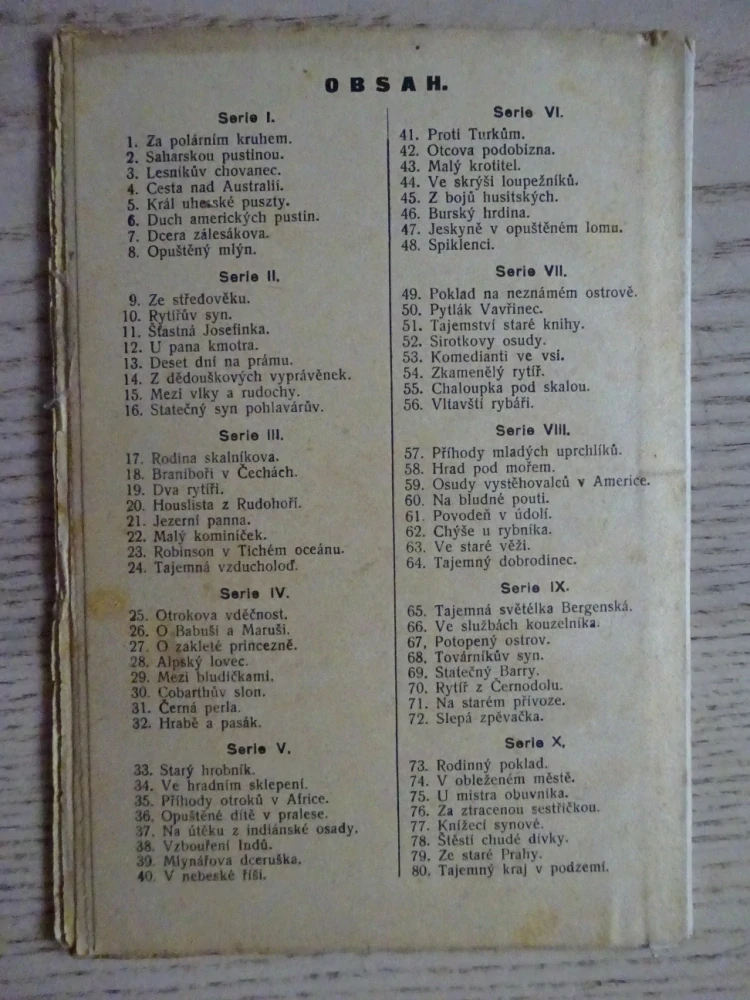 OBSAH.
Serie I.
1. Za polárním kruhem.
2. Saharskou pustinou.
3. Lesníkův chovanec.
4. Cesta nad Australií.
5. Král uherské puszty.
6. Duch amerických pustin.
7. Dcera zálesákova.
8. Opuštěný mlýn.
Serie II.
9. Ze středověku.
10. Rytířův syn.
11. Šťastná Josefinka.
12. U pana kmotra.
13. Deset dní na prámu.
14. Z dědouškových vyprávěnek.
15. Mezi vlky a rudochy.
16. Statečný syn pohlavárův.
Serie III.
17. Rodina skalníkova.
18. Braniboři v Čechách.
19. Dva rytíři.
20. Houslista z Rudohoří.
21. Jezerní panna.
22. Malý kominíček.
23. Robinson v Tichém oceánu.
24. Tajemná vzducholoď.
Serie IV.
25. Otrokova vděčnost.
26. O Babuši a Maruši.
27. O zakleté princezně.
28. Alpský lovec.
29. Mezi bludičkami.
30. Cobarthův slon.
31. Černá perla.
32. Hrabě a pasák.
Serie V.
33. Starý hrobník.
34. Ve hradním sklepení.
35. Příhody otroků v Africe.
36. Opuštěné dítě v pralese.
37. Na útěku z indiánské osady.
38. Vzbouření Indů.
39. Mlynářova dceruška.
40. V nebeské říši.
Serie VI.
41. Proti Turkům.
42. Otcova podobizna.
43. Malý krotitel.
44. Ve skrýši loupežníků.
45. Z bojů husitských.
46. Burský hrdina.
47. Jeskyně v opuštěném lomu.
48. Spiklenci.
Serie VII.
49. Poklad na neznámém ostrově.
50. Pytlák Vavřinec.
51. Tajemství staré knihy.
52. Sirotkovy osudy.
53. Komedianti ve vsi.
54. Zkamenělý rytíř.
55. Chaloupka pod skalou.
56. Vltavští rybáři.
Serie VIII.
57. Příhody mladých uprchlíků.
58. Hrad pod mořem.
59. Osudy vystěhovalců v Americe.
60. Na bludné pouti.
61. Povodeň v údolí.
62. Chýše u rybníka.
63. Ve staré věži.
64. Tajemný dobrodinec.
Serie IX.
65. Tajemná světélka Bergenská.
66. Ve službách kouzelníka.
67, Potopený ostrov.
68. Továrníkův syn.
69. Statečný Barry.
70. Rytíř z Černodolu.
71. Na starém přívoze.
72. Slepá zpěvačka.
Serie X.
73. Rodinný poklad.
74. V obleženém městě.
75. U mistra obuvníka.
76. Za ztracenou sestřičkou.
77. Knížecí synové.
78. Štěstí chudé dívky.
79. Ze staré Prahy.
80. Tajemný kraj v podzemí.